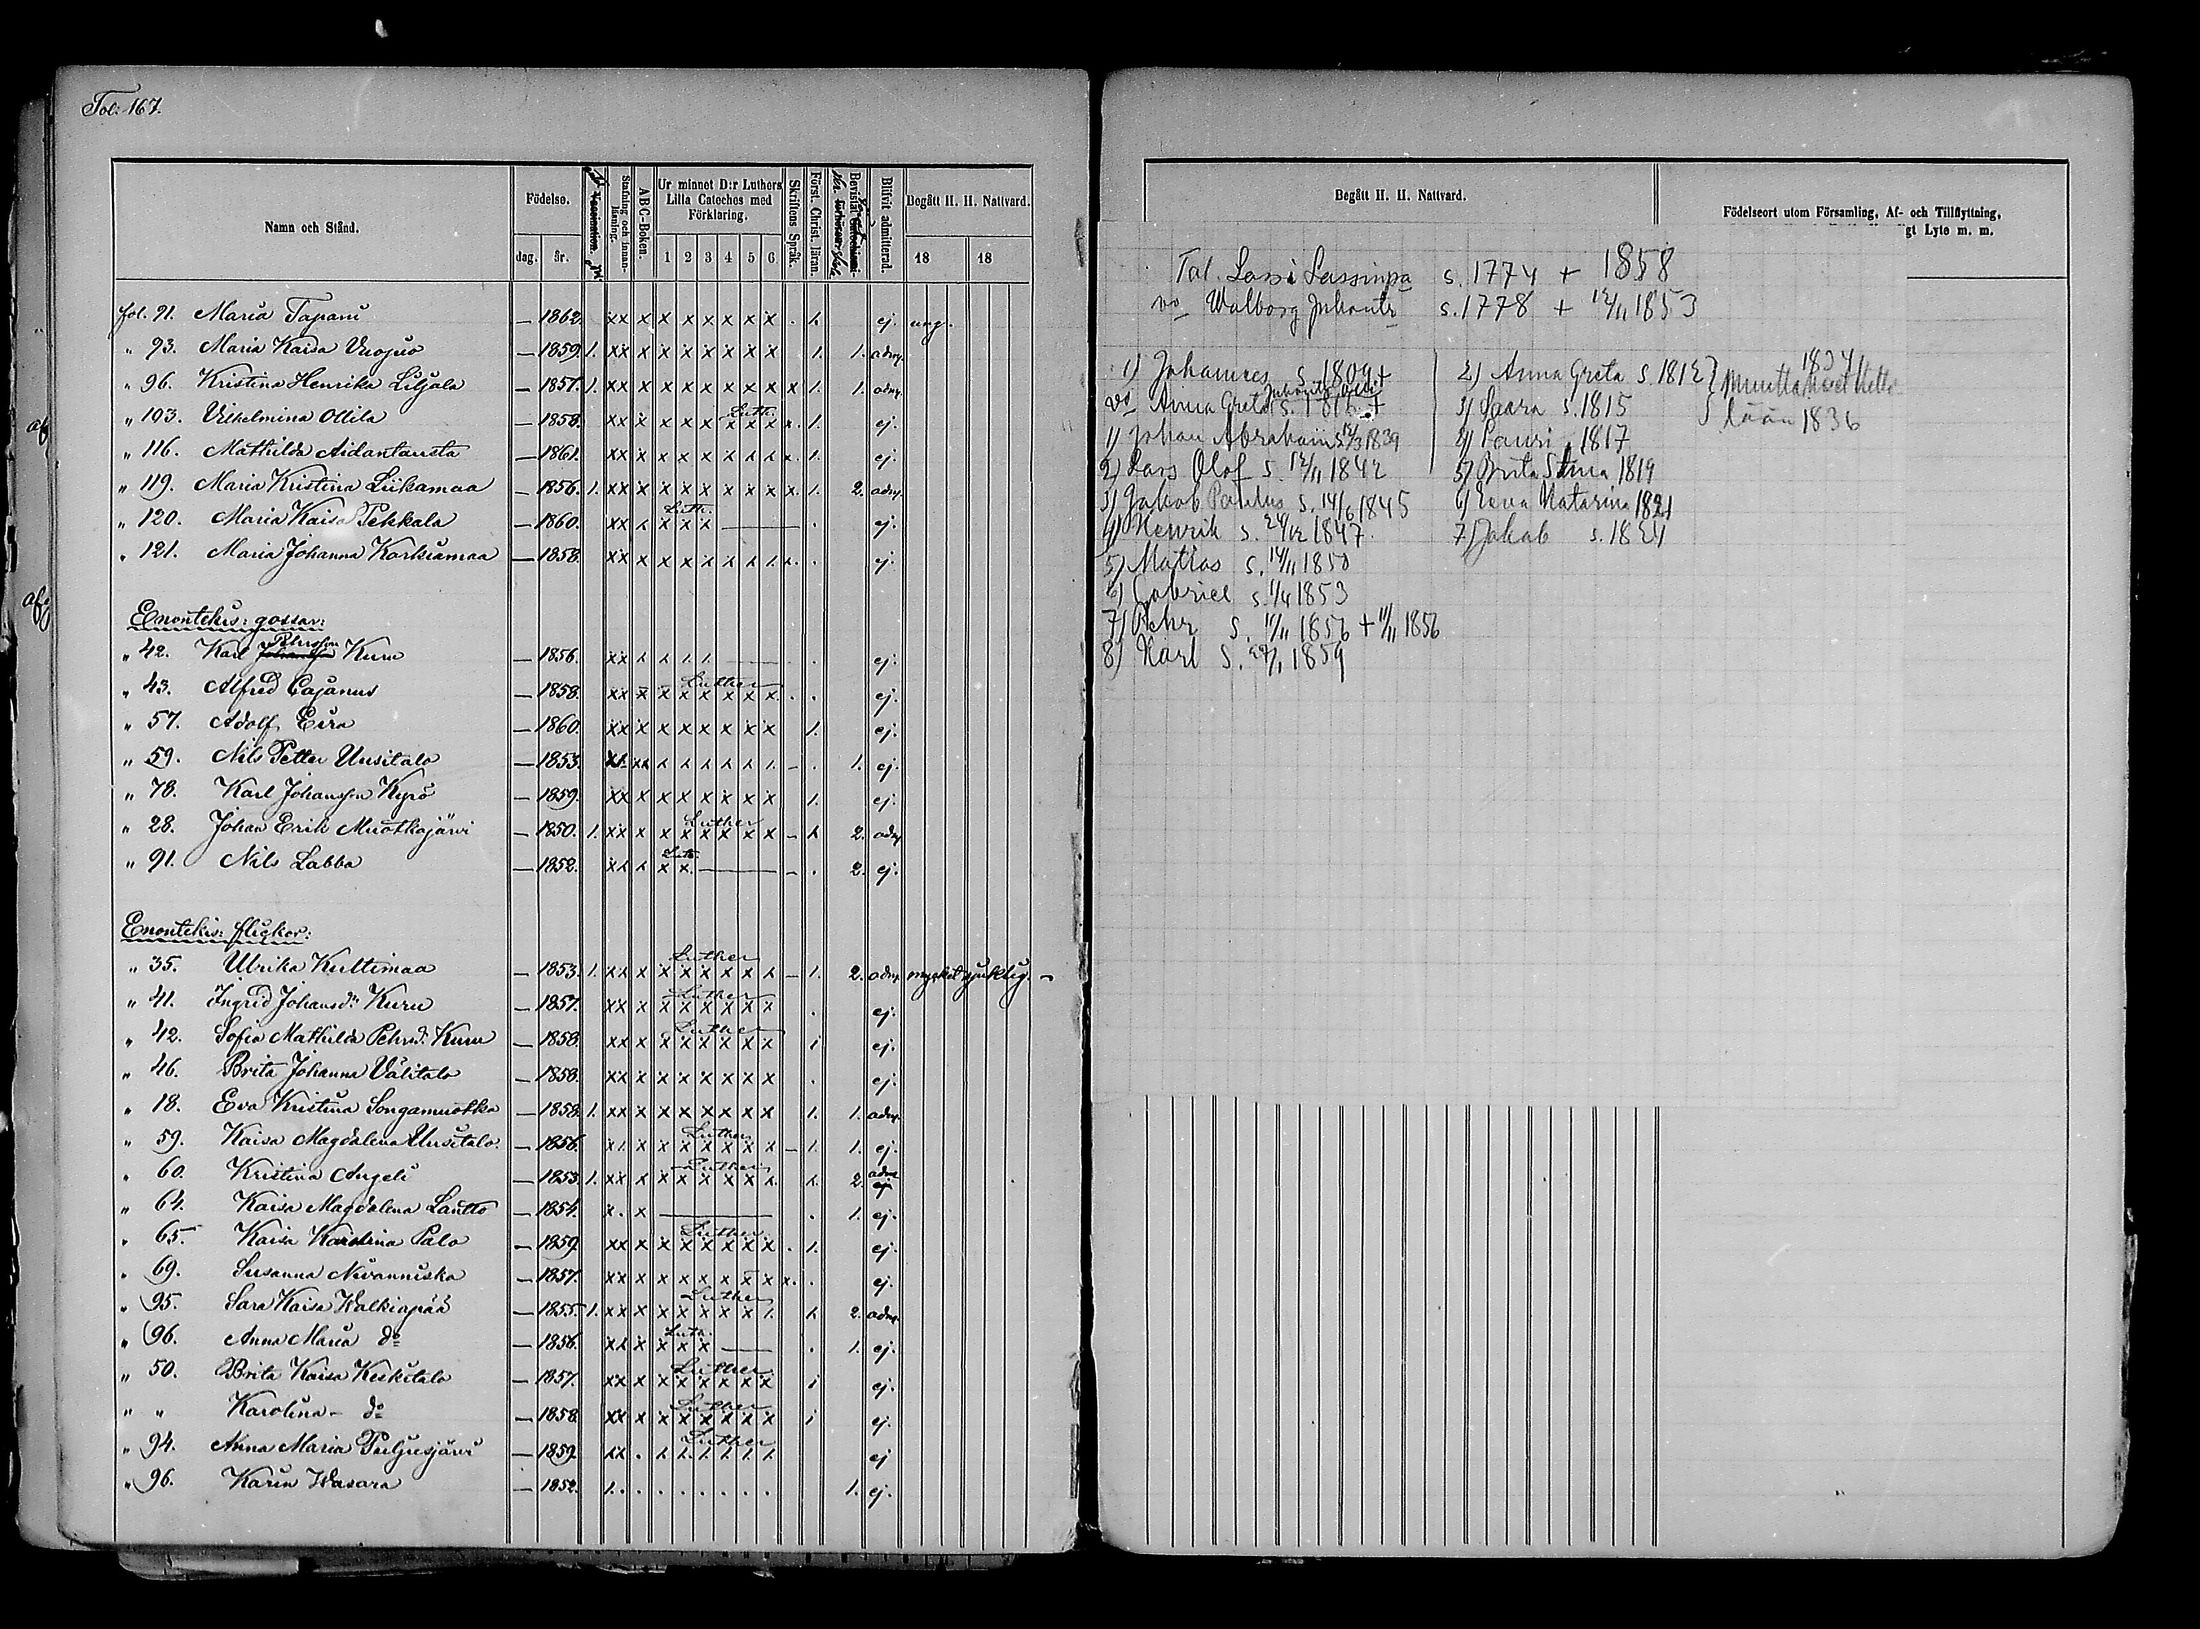 Fol. 167.
Namn och Stånd.
Födelse.
dag. år.
Stafning och innanläsning.
ABC-Boken.
Ur minnet D:r Luthers Lilla Cateches med Förklaring.
1 2 3 4 5 6
Skriftens Språk.
Först. Christ. läran.
Blifvit admitterad.
Begått H. H. Nattvard.
18 18
fol. 91. Maria Tapani — 1862. xx x x x x x x x . ej. ung.
" 93. Maria Kaisa Vuojus — 1859. 1. xx x x x x x x x 1. 1. adm.
" 96. Kristina Henrika Liljala — 1857. 1. xx x x x x x x x x 1. 1. adm.
" 103. Vilhelmina Ollila — 1858. xx x x x x Luth. x x x x. 1. ej.
" 116. Mathilda Aidantausta — 1861. xx x x x x x x. 1. ej.
" 119. Maria Kristina Liikamaa — 1856. 1. xx x x x x x x x x. 1. 2. adm.
" 120. Maria Kaisa Pekkala — 1860. Luth. x x x — . ej.
" 121. Maria Johanna Korkiamaa — 1858. xx x x x x x . ej.
Enontekis: gossar:
" 42. Karl Pehrsson Kuru — 1856. xx — . ej.
" 43. Alfred Cajanus — 1858. Luther xx x x x x x x x . . ej.
" 57. Adolf Eira — 1860. xx x x x x x x x 1. ej.
" 59. Nils Petter Uusitalo — 1853. — . 1. ej.
" 78. Karl Johansson Kyrö — 1859. xx x x x x x x x 1. ej.
" 28. Johan Erik Muotkajärvi — 1850. 1. xx x Luther x x x x x x — 2. adm
" 91. Nils Labba — 1852. Luth. x x. — — . 2. ej.
Enontekis: flickor:
" 35. Ulrika Kultimaa — 1853. 1. Luther x x x x x — 1. 2. adm. mycket sjuklig. —
" 41. Ingrid Johansd:r Kuru — 1857. xx x Luther x x x x x x . ej.
" 42. Sofia Mathilda Pehrsd: Kuru — 1858. xx x Luther x x x x x x i ej.
" 46. Brita Johanna Välitalo — 1858. xx x x x x x x x . ej.
" 18. Eva Kristina Songamuotka — 1858. 1. xx x x x x x x x 1. 1. adm.
" 59. Kaisa Magdalena Uusitalo. — 1856. Luther x x x x x x — 1. 1. ej.
" 60. Kristina Angeli — 1853. 1. Luther x x x x x 2. adm. ej
" 64. Kaisa Magdalena Lautto — 1854. x. x — . 1. ej.
" 65. Kaisa Karolina Palo — 1859. xx x Luther x x x x x x . 1. ej.
" 69. Susanna Nivanniska — 1857. xx x x x x x x x x. . ej.
" 95. Sara Kaisa Walkiapää — 1855. 1. xx x Luther x x x x x 1. 2. adm.
" 96. Anna Maria d:o — 1856. Luth. x x x — . 1. ej.
" 50. Brita Kaisa Keskitalo — 1857. xx x Luther x x x x x x i ej.
" " Karolina — d:o — 1858. xx x Luther x x x x x x i ej.
" 94. Anna Maria Puljusjärvi — 1859. Luther ej
" 96. Karin Wasara — 1852. 1. . . . . . . . 1. ej.
Begått H. H. Nattvard.
Födelseort utom Församling, Af- och Tillflyttning,
gt Lyte m. m.
Tal. Lassi Lassinpa s. 1774 + 1858
vo Walborg Juhontr s. 1778 + 12/11 1853
1) Johannes s. 1809 +
vo Anna Greta
1) Johan Abraham 1839
2) Lars Olof s. 12/11 1842
3) Jakob Paulus s. 14/6 1845
4) Henrik s. 24/12 1847.
5) Matias s. 14/11 1850
6) Gabriel s. 1/4 1853
7) Pehr s. 11/11 1856 + 11/11 1856
8) Karl s. 1859
2) Anna Greta s. 1812 } 1834
3) Saara s. 1815
4) Lauri " 1817
5) Brita Stina 1819
6) Eeva Katarina 1821
7) Jakob s. 1824
lään 1836